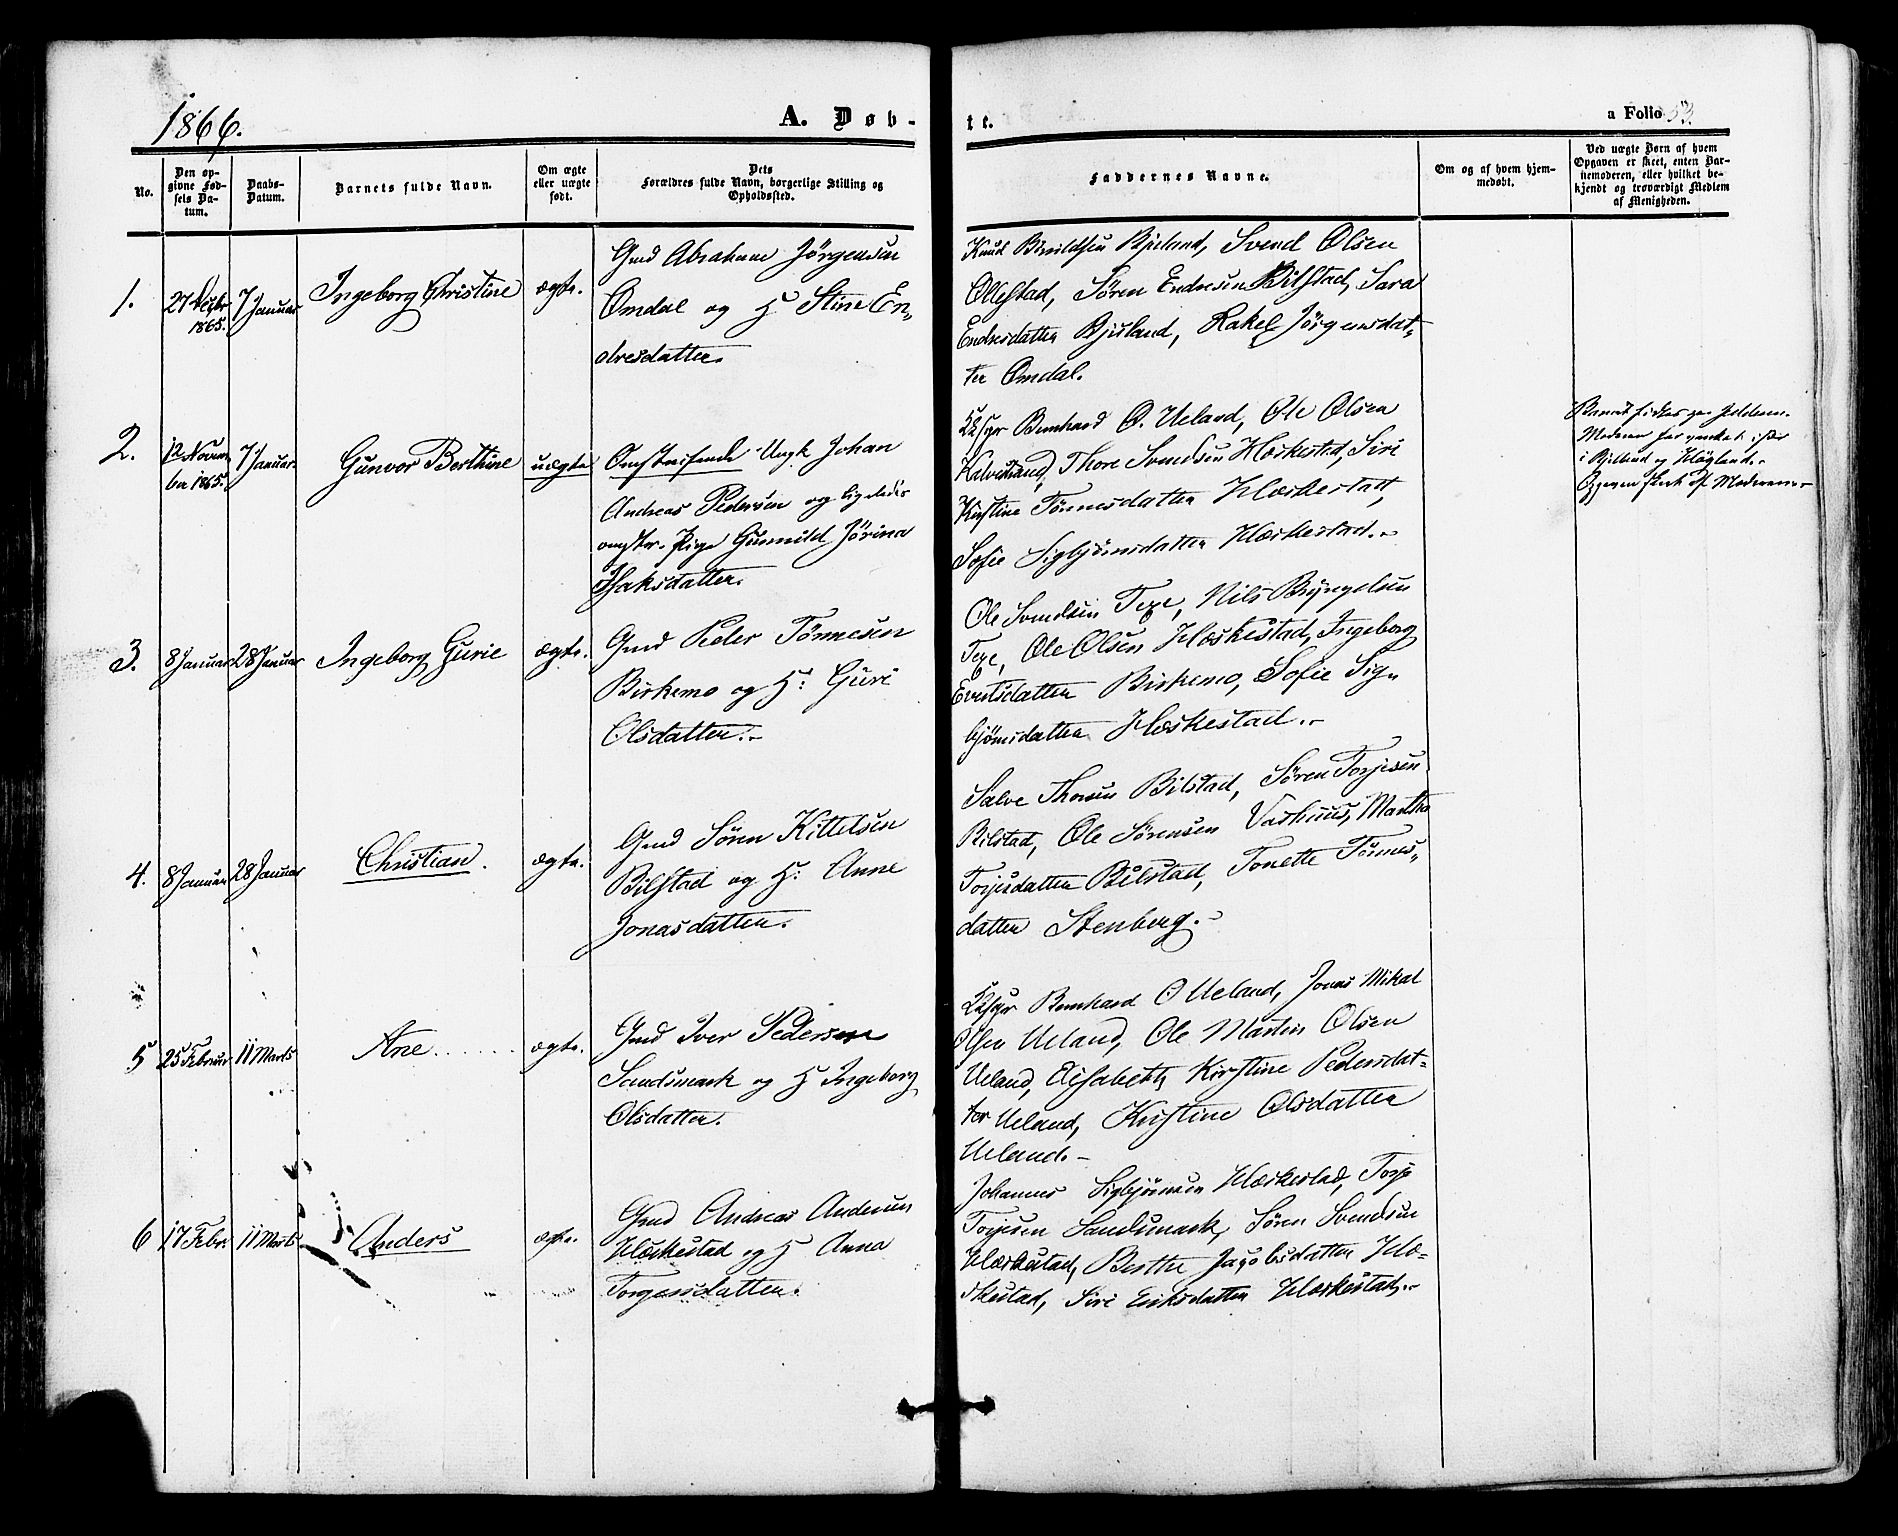 1866.
A. Døb-
te.
a Folio 53
No.
Den op-
givne Fød-
sels Da-
tum.
Daabs-
Datum.
Barnets fulde Navn.
Om ægte
eller uægte
født.
Dets
Forældres fulde Navn, borgerlige Stilling og
Opholdssted.
Faddernes Navne.
Om og af hvem hjem-
medøbt.
Ved uægte Børn af hvem
Opgaven er skeet, enten Bar-
nemoderen, eller hvilket be-
kjendt og troværdigt Medlem
af Menigheden.
1.
27 Decbr
1865.
7 Januar
Ingeborg Christine
ægte.
Gmd Abraham Jörgensen
Omdal og H Stine En-
dresdatter.
Knud Bjelland, Svend Olsen
Ollestad, Søren Endresen Bilstad, Sara
Endresdatter Bjelland, Rakel Jörgensdat-
ter Omdal.
2.
12 Novem
ber 1865.
7 Januar.
Gunvor Berthine
uægte
Omstreifende Ungk Johan
Andreas Pedersen og ligeledes
omstr. Pige Gunnild Jörina
Isaksdatter.
Bernhard O. Ueland, Ole Olsen
Kalvestrand, Thore Svendsen Hæskestad, Siri
Kirstine Tönnesdatter Hæskestad,
Sofie Sigbjörnsdatter Hæskestad.-
i Bjelland og Höyland.-
Opgaven skeet af Moderen.-
3.
8 Januar
28 Januar
Ingeborg Gurie
ægte.
Gmd Peder Tönnesen
Birkemo og H: Guri
Olsdatter.-
Ole Svendsen Texe, Nils Bryngelsen
Texe, Ole Olsen Hæskestad, Ingeborg
Evertsdatter Birkemo, Sofie Sig-
björnsdatter Hæskestad.-
4.
8 Januar
28 Januar
Christian.
ægte.
Gmd Sören Kittelsen
Bilstad og H: Anne
Jonasdatter.
Salve Thorsen Bilstad, Sören Torjesen
Bilstad, Ole Sörensen Vashuus, Martha
Torjesdatter Bilstad, Tonette Tönnes-
datter Stenberg.-
5
25 Februar
11 Marts
Ane
ægte.
Gmd Iver Pedersen
Sandsmark og H Ingeborg
Olsdatter.
Bernhard O Ueland, Jonas Mikal
Olsen Ueland, Ole Martin Olsen
Ueland, Elisabeth Kirstine Pedersdat-
ter Ueland, Kirstine Olsdatter
Ueland.-
6
17 Febr.
11 Marts
Anders
ægte.
Gmd Andreas Andersen
Hæskestad og H Anna
Torgersdatter.
Johannes Sigbjörnsen Hæskestad, Torje
Torjesen Sandsmark, Sören Svendsen
Hæskestad, Berthe Jacobsdatter Hæ-
skestad, Siri Eriksdatter Hæskestad.-